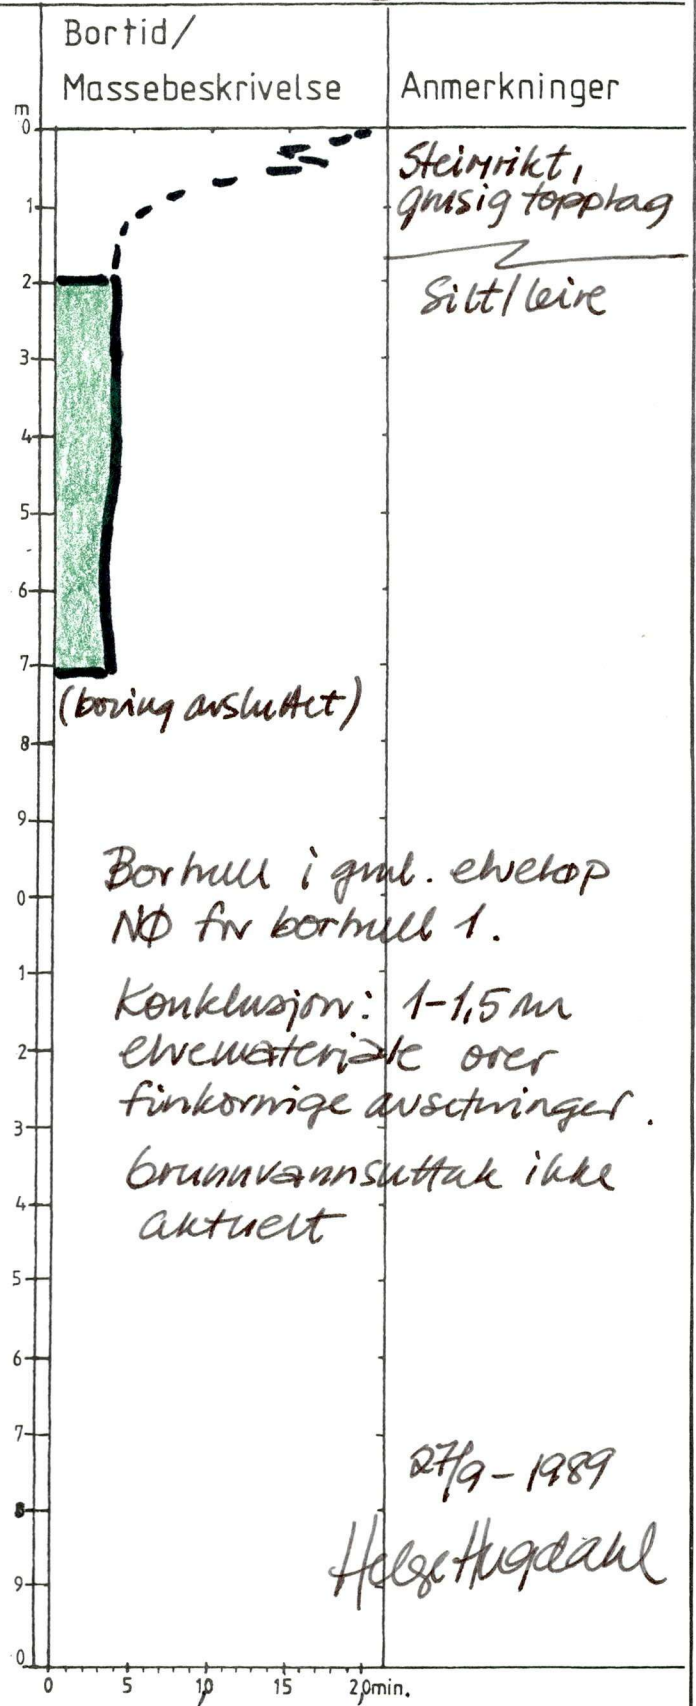 Bortid/
Massebeskrivelse
Anmerkninger
m
0
Steinrikt,
grusig topplag
1
2
Silt/leire
3
4
5
6
7
(boring avsluttet)
8
9
Borhull i gml. elveløp
0
NØ for borhull 1.
1
Konklusjon: 1-1,5 m
2
elvemateriale over
finkornige avsetninger.
3
Grunnvannsuttak ikke
4
aktuelt
5
6
7
27/9-1989
8
Helge Hugdahl
9
0
0 5 10 15 20min.